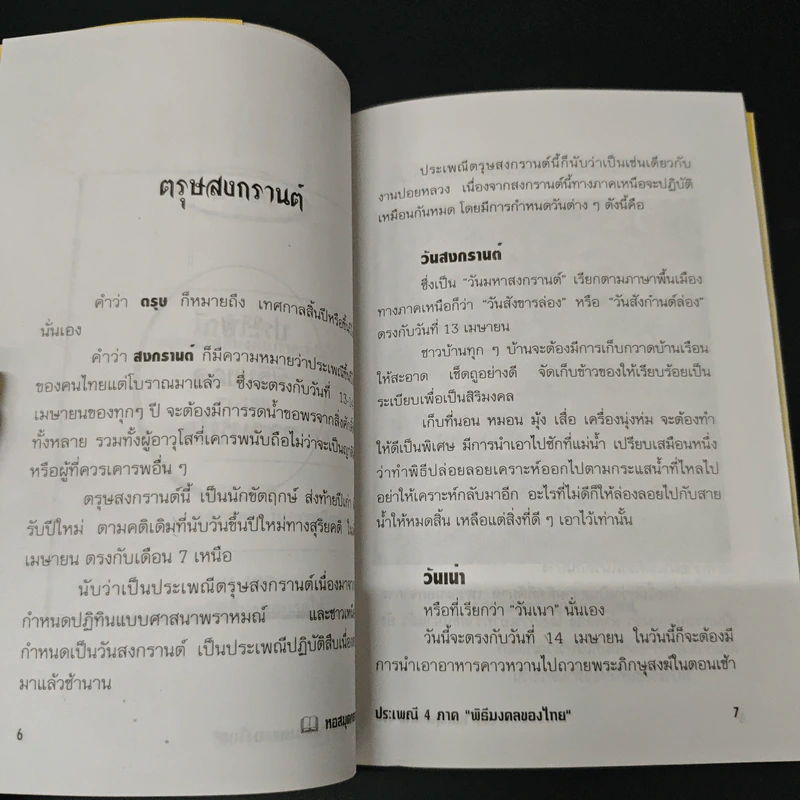 ตรุษสงกรานต์
คำว่า ตรุษ ก็หมายถึง เทศกาลสิ้นปีหรือ
นั่นเอง
คำว่า สงกรานต์ ก็มีความหมายว่าประเพณี
ของคนไทยแต่โบราณมาแล้ว ซึ่งจะตรงกับวันที่ 13-
เมษายนของทุกๆ ปี จะต้องมีการรดน้ำขอพรจาก
ทั้งหลาย รวมทั้งผู้อาวุโสที่เคารพนับถือไม่ว่าจะเป็น
หรือผู้ที่ควรเคารพอื่น ๆ
ตรุษสงกรานต์นี้ เป็นนักขัตฤกษ์ ส่งท้าย
รับปีใหม่ ตามคติเดิมที่นับวันขึ้นปีใหม่ทางสุริยคติ
เมษายน ตรงกับเดือน 7 เหนือ
นับว่าเป็นประเพณีตรุษสงกรานต์เนื่อง
กำหนดปฏิทินแบบศาสนาพราหมณ์
กำหนดเป็นวันสงกรานต์ เป็นประเพณีปฏิบัติสืบ
มาแล้วช้านาน
6
ประเพณีตรุษสงกรานต์นี้ก็นับว่าเป็นเช่นเดียวกับ
งานปอยหลวง เนื่องจากสงกรานต์นี้ทางภาคเหนือจะปฏิบัติ
เหมือนกันหมด โดยมีการกำหนดวันต่าง ๆ ดังนี้คือ
วันสงกรานต์
ซึ่งเป็น "วันมหาสงกรานต์" เรียกตามภาษาพื้นเมือง
ทางภาคเหนือก็ว่า "วันสังขารล่อง" หรือ "วันสังก๋านต์ล่อง"
ตรงกับวันที่ 13 เมษายน
ชาวบ้านทุก ๆ บ้านจะต้องมีการเก็บกวาดบ้านเรือน
ให้สะอาด เช็ดถูอย่างดี จัดเก็บข้าวของให้เรียบร้อยเป็น
ระเบียบเพื่อเป็นสิริมงคล
เก็บที่นอน หมอน มุ้ง เสื่อ เครื่องนุ่งห่ม จะต้องทำ
ให้ดีเป็นพิเศษ มีการนำเอาไปซักที่แม่น้ำ เปรียบเสมือนหนึ่ง
ว่าทำพิธีปล่อยลอยเคราะห์ออกไปตามกระแสน้ำที่ไหลไป
อย่าให้เคราะห์กลับมาอีก อะไรที่ไม่ดีก็ให้ล่องลอยไปกับสาย
น้ำให้หมดสิ้น เหลือแต่สิ่งที่ดี ๆ เอาไว้เท่านั้น
วันเน่า
หรือที่เรียกว่า "วันเนา" นั่นเอง
วันนี้จะตรงกับวันที่ 14 เมษายน ในวันนี้ก็จะต้องมี
การนำเอาอาหารคาวหวานไปถวายพระภิกษุสงฆ์ในตอนเช้า
ประเพณี 4 ภาค "พิธีมงคลของไทย"
7